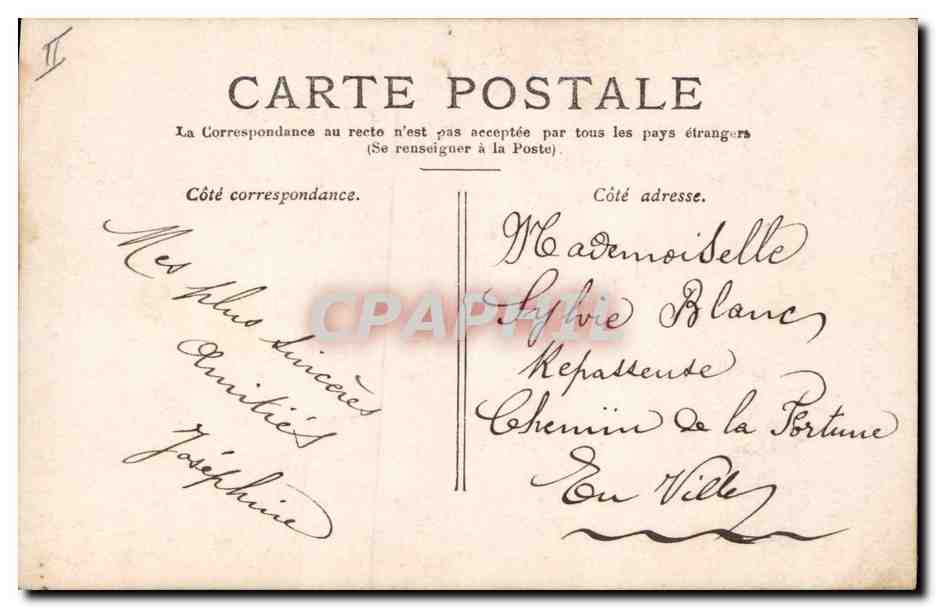 II
CARTE POSTALE
La Correspondance au recto n'est pas acceptée par tous les pays étrangers
(Se renseigner à la Poste)
Côté correspondance.
Mes plus sincères
Amitiés
Joséphine
Côté adresse.
Mademoiselle
Sylvie Blanc
Repasseuse
Chemin de la Fortune
En Ville
CPAPHIL